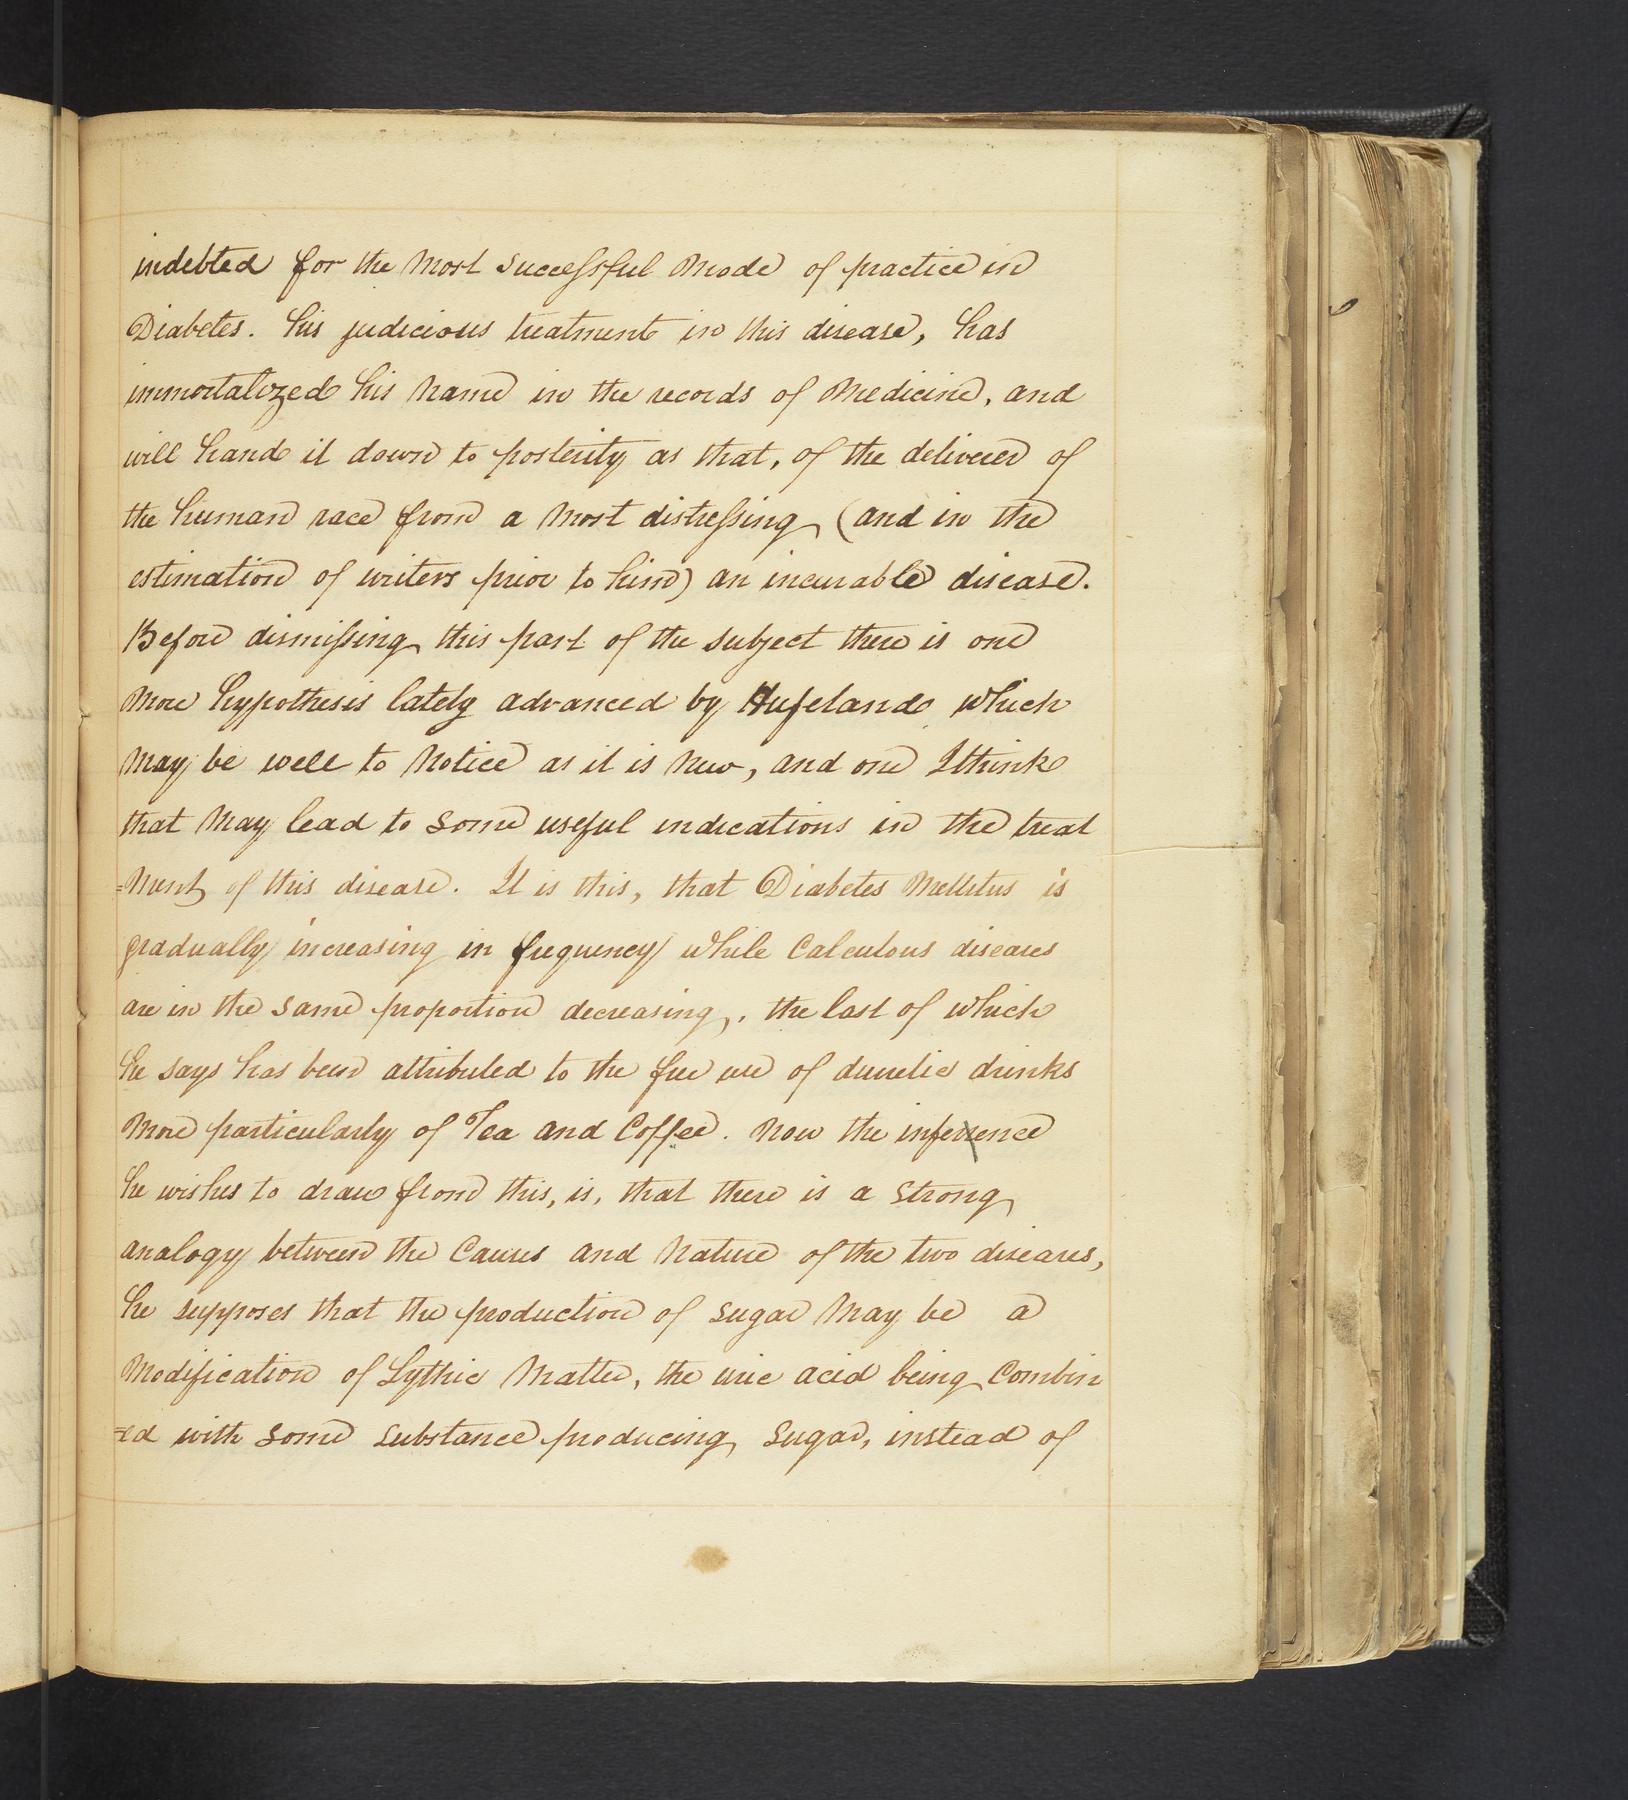 indebted for the most successful mode of practice in
Diabetes. his judicious treatment in this disease, has
immortalized his name in the records of Medicine, and
will hand it down to posterity as that, of the deliverer of
the human race from a most distressing (and in the
estimation of writers prior to him) an incurable disease.
Before dismissing this part of the subject there is one
more hypothesis lately advanced by Hufeland which
may be well to notice as it is new, and one I think
that may lead to some useful indications in the treat
=ment of this disease. It is this, that Diabetes Mellitus is
gradually increasing in frequency while Calculous diseases
are in the same proportion decreasing, the last of which
he says has been attributed to the free use of diuretic drinks
more particularly of Tea and Coffee. Now the inferrence
he wishes to draw from this, is, that there is a strong
analogy between the Causes and nature of the two diseases,
he supposes that the production of sugar may be a
modification of Lythic matter, the uric acid being Combin
=ed with some substance producing sugar, instead of